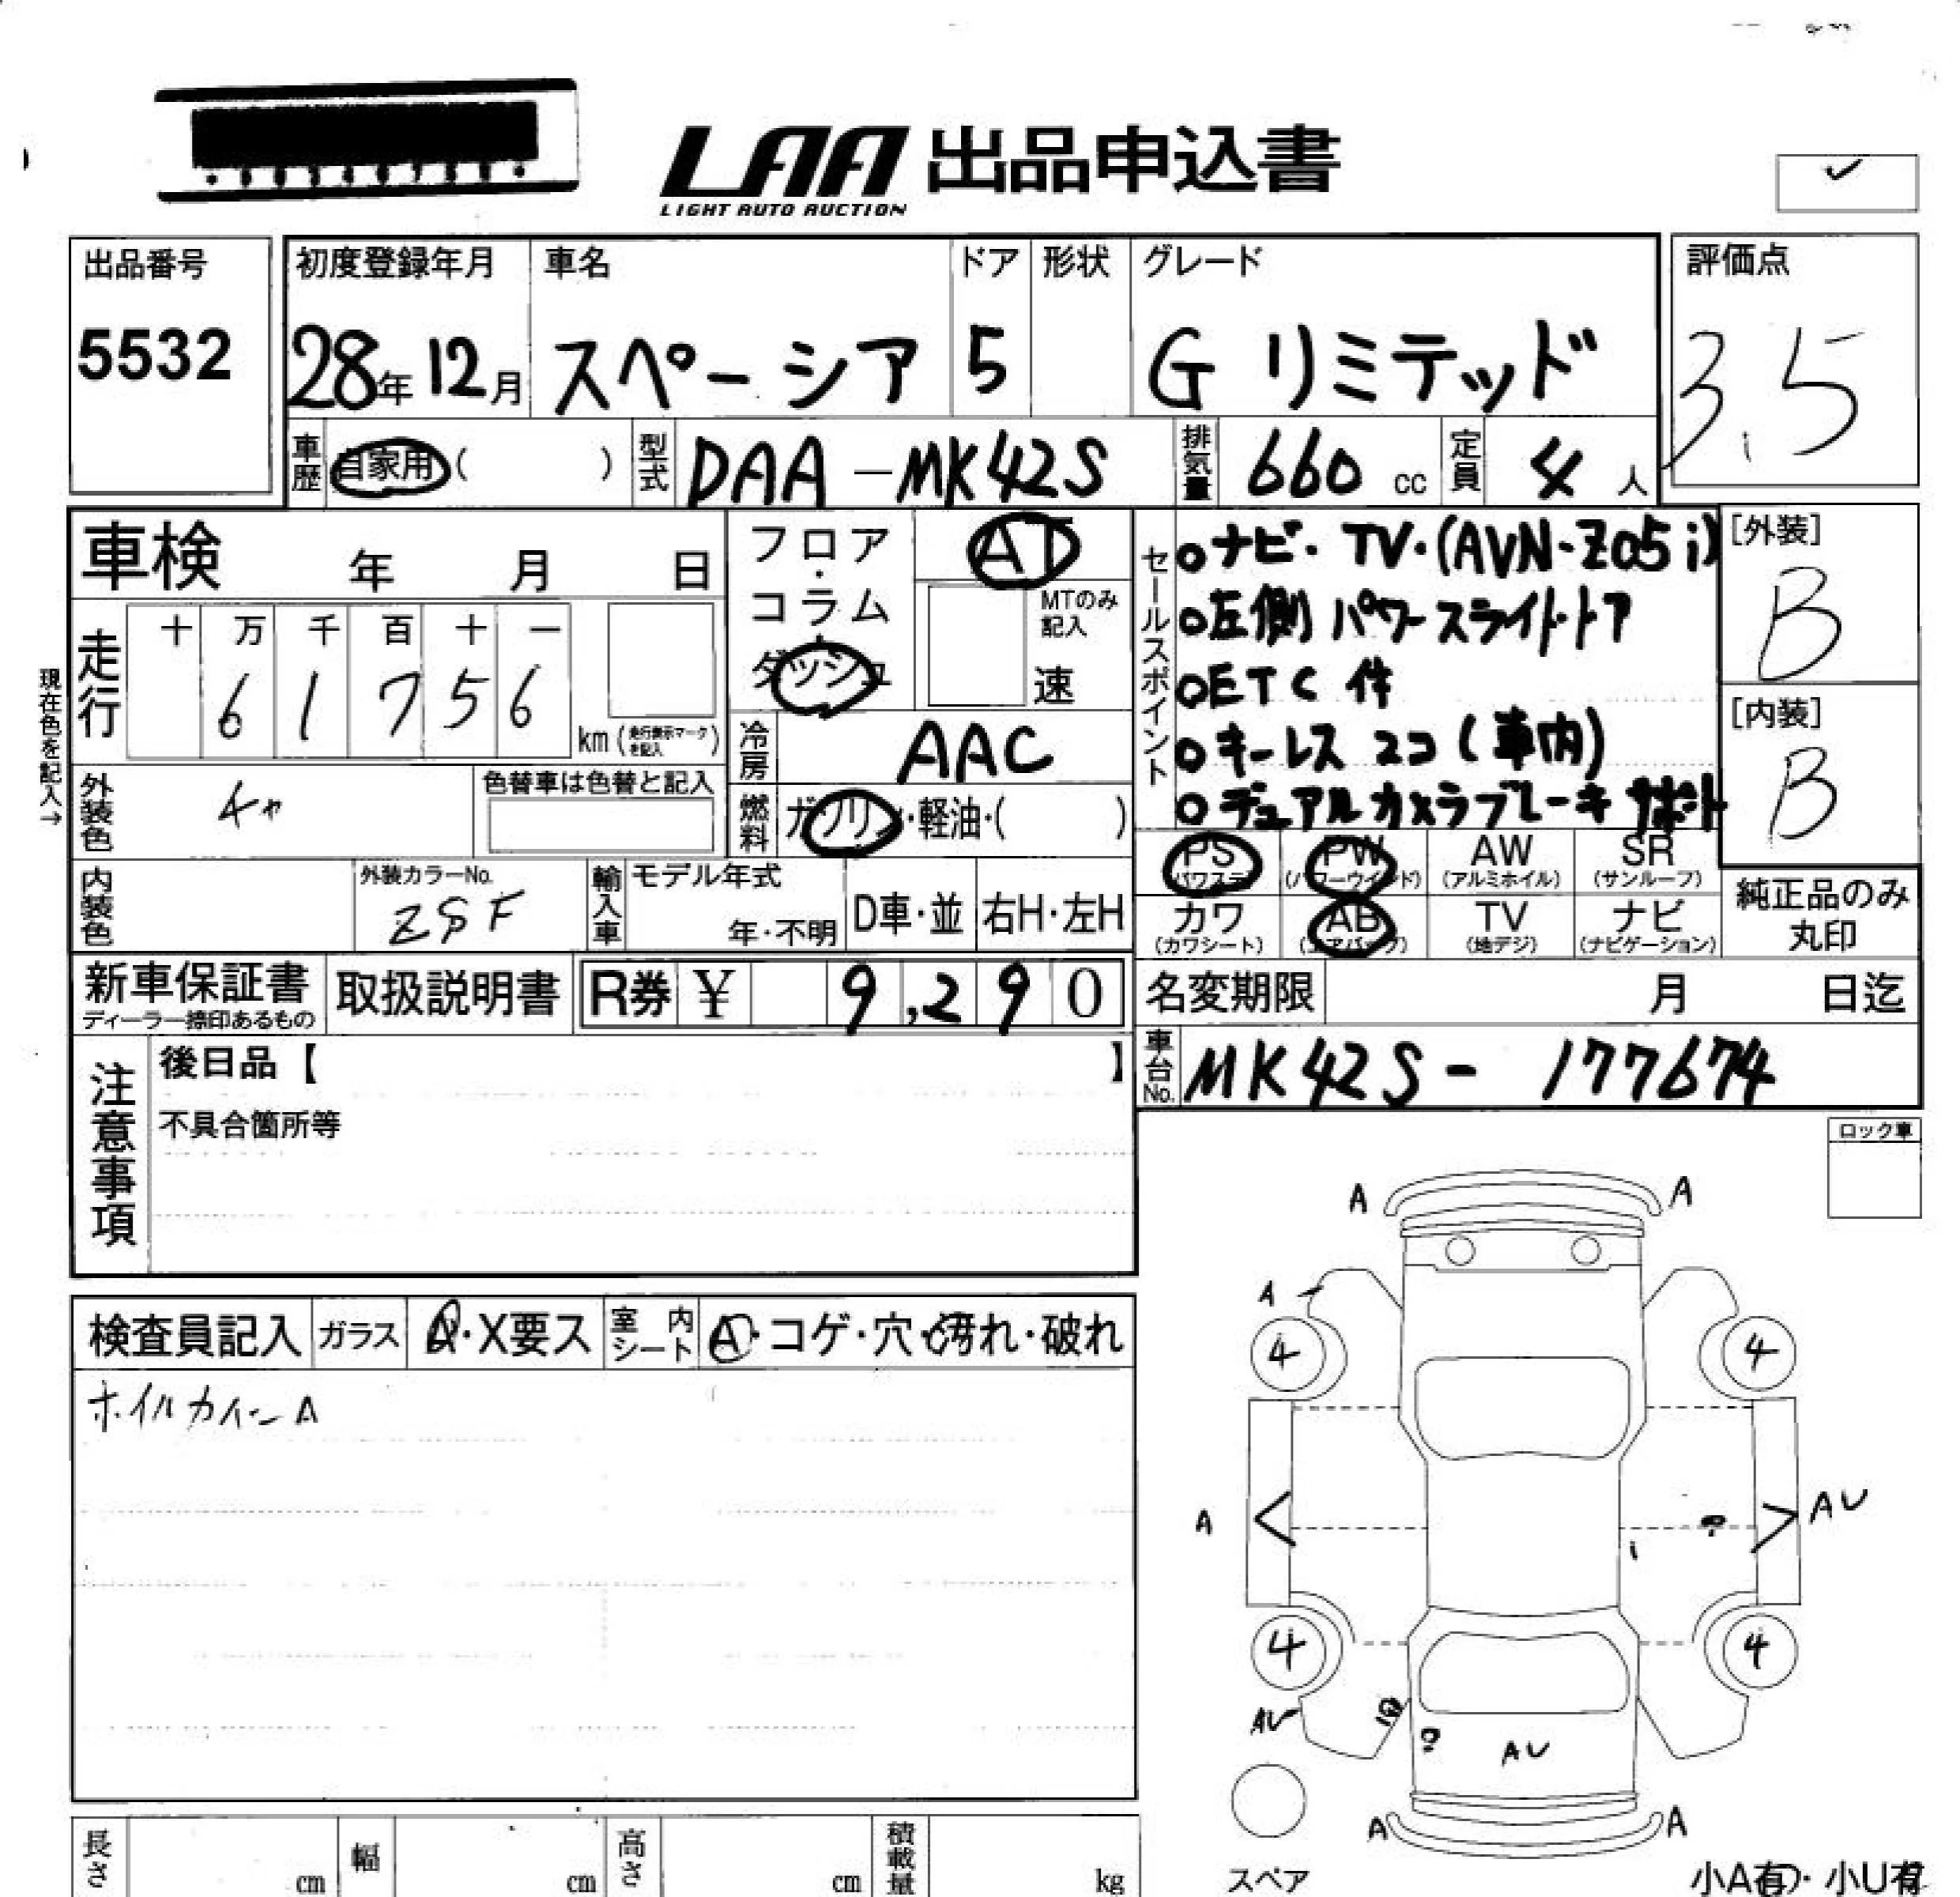 LAA 出品申込書
LIGHT AUTO AUCTION
出品番号
5532
初度登録年月
28年12月
車名
スペーシア
ドア
5
形状
グレード
G リミテッド
評価点
3.5
車歴
自家用( )
型式
DAA-MK42S
排気量
660 cc
定員
4 人
車検 年 月 日
フロア・コラム・ダッシュ
AT
MTのみ記入
速
セールスポイント
○ナビ・TV・(AVN-Z05i)
○左側パワースライドドア
○ETC 件
○キーレス 2コ (車内)
○デュアルカメラブレーキサポート
[外装]
B
[内装]
B
現在色を記入→
走行
十 万 千 百 十 一
6 1 7 5 6
km(走行表示マークを記入)
冷房
AAC
外装色
チャ
色替車は色替と記入
燃料
ガソリン・軽油・( )
PS (パワステ)
PW (パワーウインド)
AW (アルミホイル)
SR (サンルーフ)
内装色
外装カラーNo.
ZSF
輸入車
モデル年式
年・不明
D車・並
右H・左H
カワ (カワシート)
AB (エアバッグ)
TV (地デジ)
ナビ (ナビゲーション)
純正品のみ丸印
新車保証書
ディーラー捺印あるもの
取扱説明書
R券 ¥ 9,290
名変期限 月 日迄
注意事項
後日品【 】
不具合箇所等
車台No.
MK42S-177674
ロック車
検査員記入
ガラス
A・X要ス
室内シート
A・コゲ・穴・汚れ・破れ
A A
A
4 4
A
AU
4 4
AU
AU
A A
スペア
長さ cm
幅 cm
高さ cm
積載量 kg
小A有・小U有